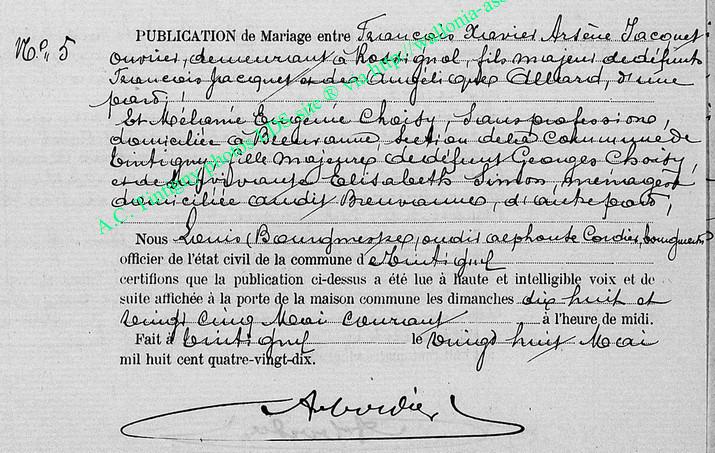 N° 5
PUBLICATION de Mariage entre François Xavier Arsène Jacquet
ouvrier, demeurant à Rossignol, fils majeur de défunts
François Jacquet et de Angélique Allard, d'une
part;
Et Mélanie Eugénie Choisy, sans profession,
domiciliée à Breuvanne, section de la commune de
Tintigny, fille majeure de défunt Georges Choisy,
et de survivante Elisabeth Simon, ménagère
domiciliée audit Breuvanne, d'autre part;
Nous Louis Alphonse Cordier, bourgmestre
officier de l'état civil de la commune d Tintigny
certifions que la publication ci-dessus a été lue à haute et intelligible voix et de
suite affichée à la porte de la maison commune les dimanches dix huit et
vingt cinq Mai courant à l'heure de midi.
Fait à Tintigny le vingt huit Mai
mil huit cent quatre-vingt-dix.
A Cordier
A.C. Tintigny photos BDS site ® via http://wallonia-as